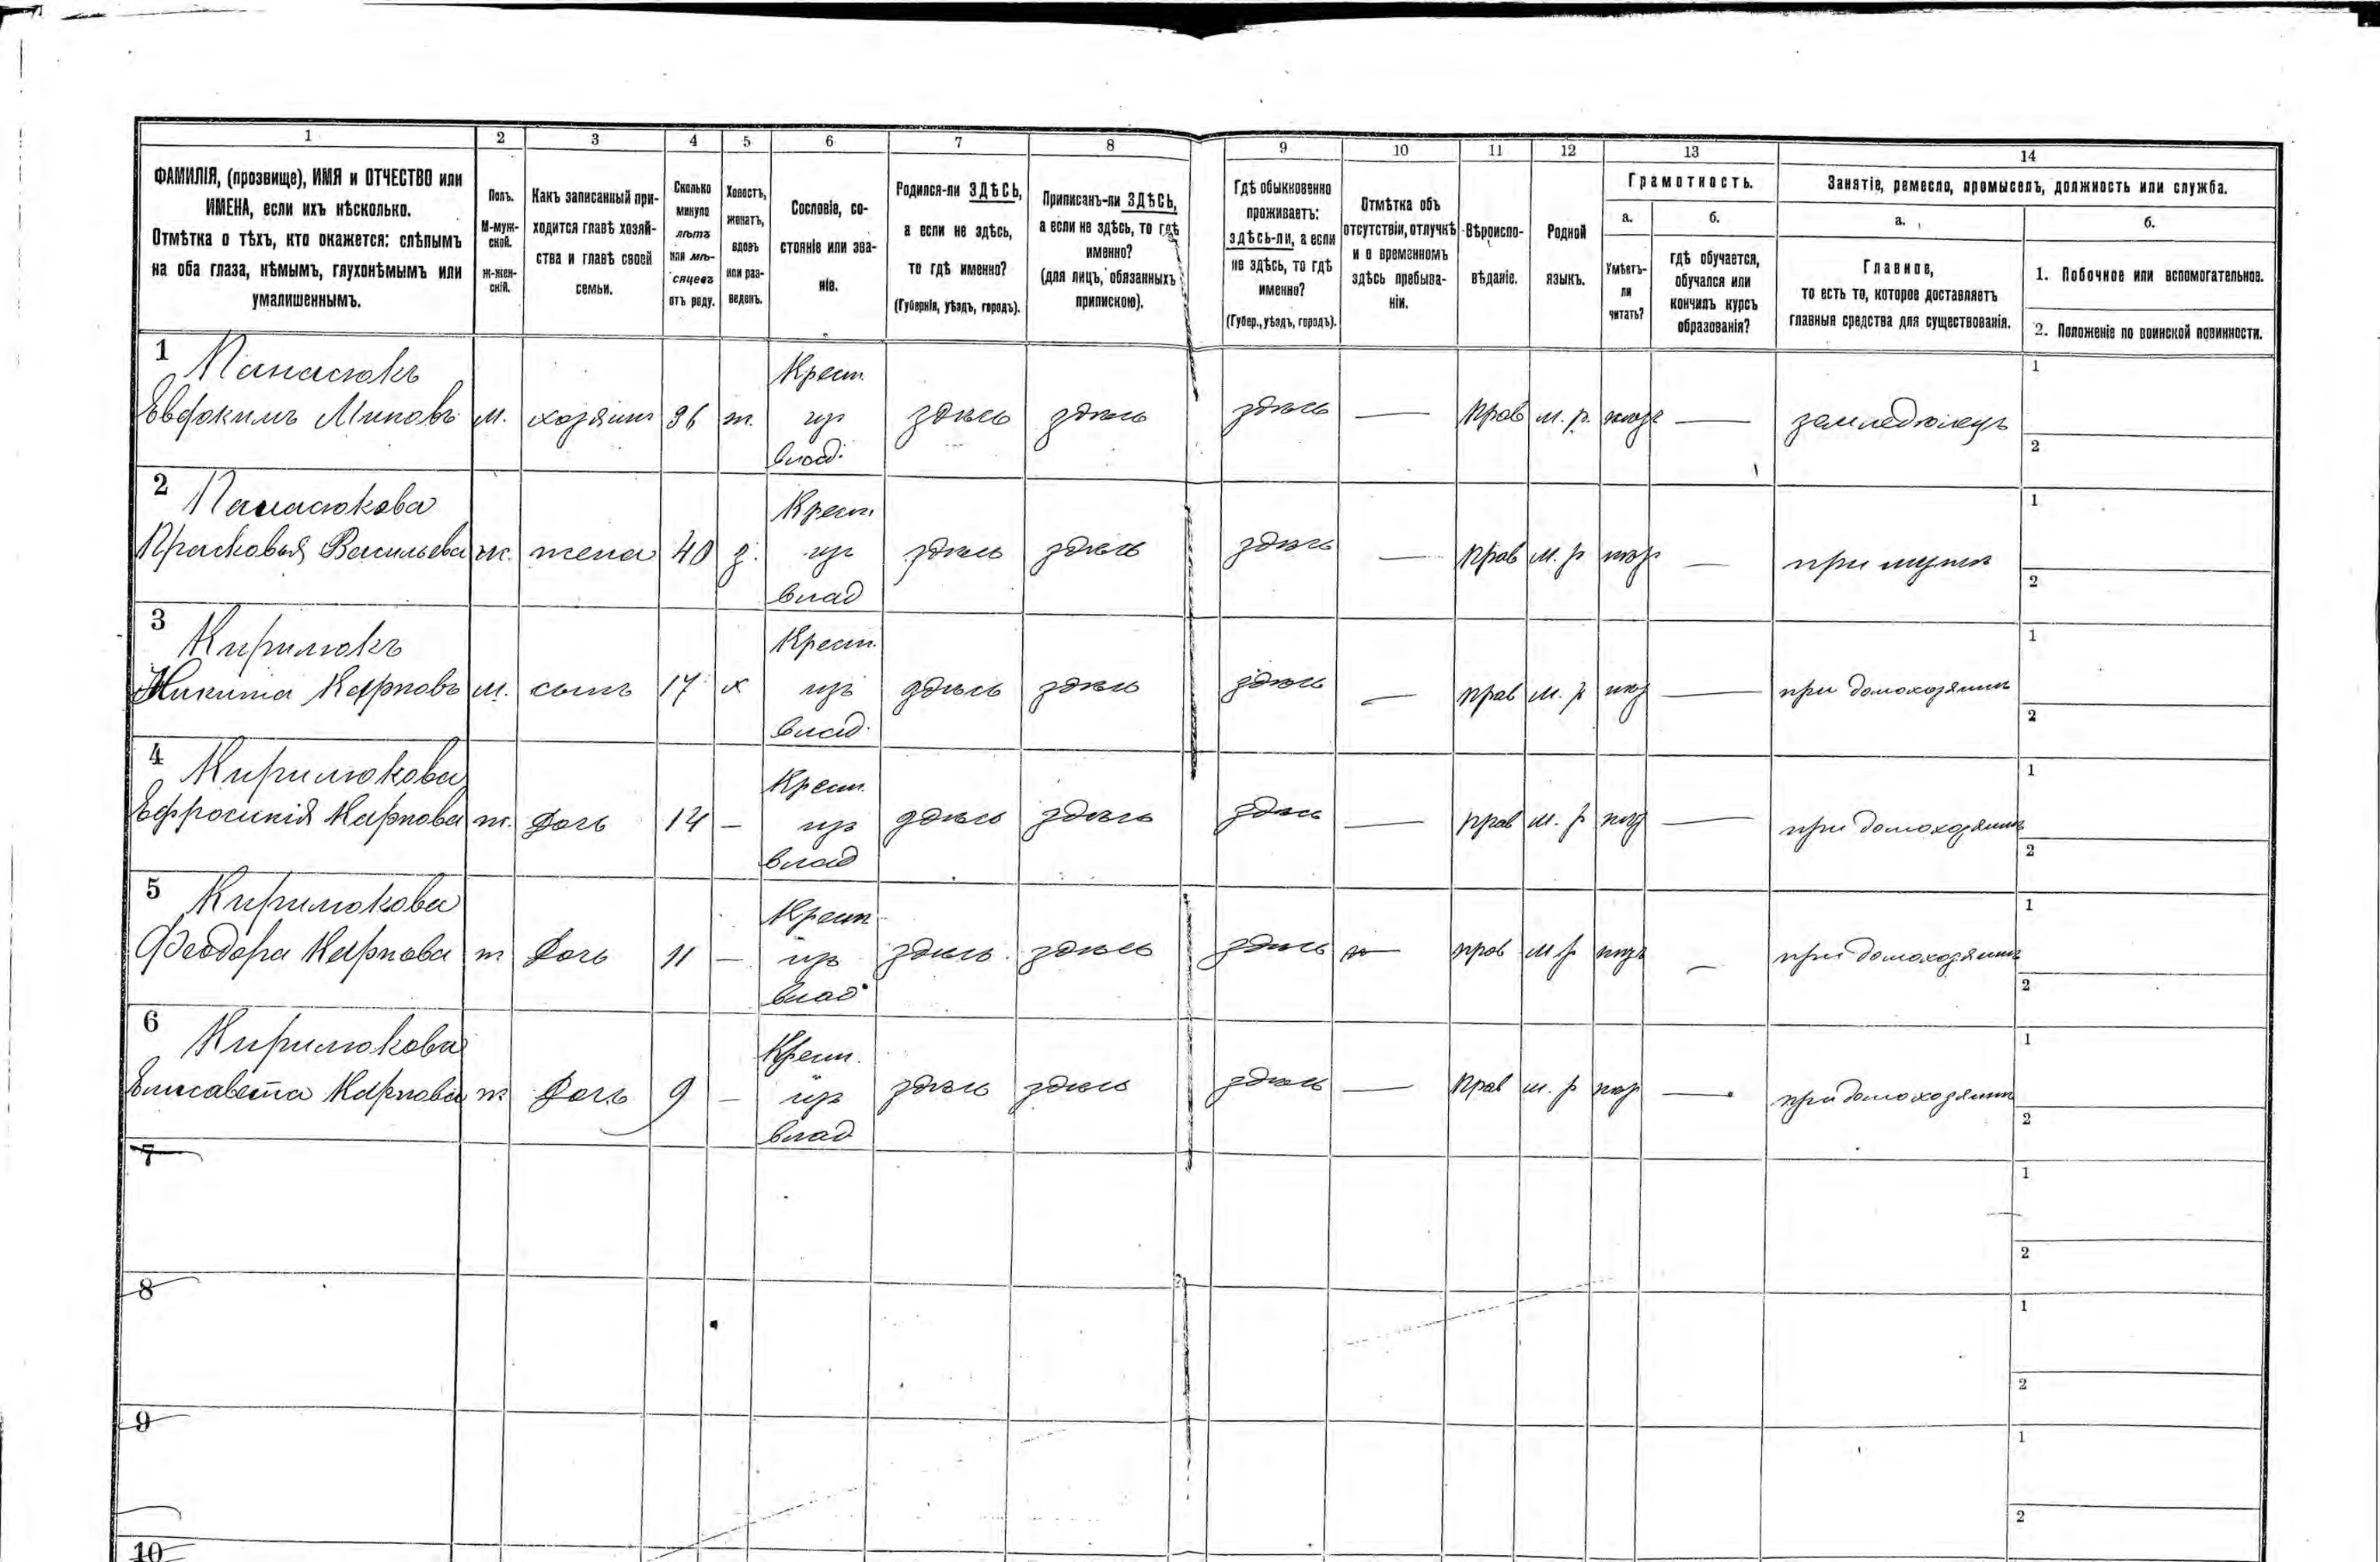 1 2 3 4 5 6 7 8 9 10 11 12 13 14
ФАМИЛІЯ, (прозвище), ИМЯ и ОТЧЕСТВО или
ИМЕНА, если ихъ нѣсколько.
Отмѣтка о тѣхъ, кто окажется: слѣпымъ
на оба глаза, нѣмымъ, глухонѣмымъ или
умалишеннымъ.
Полъ.
М-муж-
ской.
Ж-жен-
скій.
Какъ записанный при-
ходится главѣ хозяй-
ства и главѣ своей
семьи.
Сколько
минуло
лѣтъ
или мѣ-
сяцевъ
отъ роду.
Холостъ,
женатъ,
вдовъ
или раз-
веденъ.
Сословіе, со-
стояніе или зва-
ніе.
Родился-ли ЗДѢСЬ,
а если не здѣсь,
то гдѣ именно?
(Губернія, уѣздъ, городъ).
Приписанъ-ли ЗДѢСЬ,
а если не здѣсь, то гдѣ
именно?
(для лицъ, обязанныхъ
припискою).
Гдѣ обыкновенно
проживаетъ:
здѣсь-ли, а если
не здѣсь, то гдѣ
именно?
(Губер., уѣздъ, городъ).
Отмѣтка объ
отсутствіи, отлучкѣ
и о временномъ
здѣсь пребыва-
ніи.
Вѣроиспо-
вѣданіе.
Родной
языкъ.
Грамотность.
а.
Умѣетъ-
ли
читать?
б.
гдѣ обучается,
обучался или
кончилъ курсъ
образованія?
Занятіе, ремесло, промыселъ, должность или служба.
а.
Главное,
то есть то, которое доставляетъ
главныя средства для существованія.
б.
1. Побочное или вспомогательное.
2. Положеніе по воинской повинности.
1 Панасюкъ Крест. 1
Евдокимъ м. хозяинъ 36 ж. из здѣсь здѣсь здѣсь — прав м. р. — земледѣлецъ
влад. 2
2 Панасюкова Крест. 1
Прасковья Васильева ж. жена 40 из здѣсь здѣсь здѣсь — прав м. р — при мужѣ
влад 2
3 Кирилюкъ Крест. 1
Никита Карповъ м. сынъ 17 х из здѣсь здѣсь здѣсь — прав м. р — при домохозяинѣ
влад. 2
4 Кирилюкова Крест. 1
Ефросинія Карпова ж. дочь 14 — из здѣсь здѣсь здѣсь — прав м. р — при домохозяинѣ
влад 2
5 Кирилюкова Крест 1
Ѳеодора Карпова ж дочь 11 — из здѣсь здѣсь здѣсь — прав м р — при домохозяинѣ
влад 2
6 Кирилюкова Крест. 1
Елисавета Карпова ж дочь 9 — из здѣсь здѣсь здѣсь — прав м. р — при домохозяинѣ
влад 2
7 1
2
8 1
2
9 1
2
10